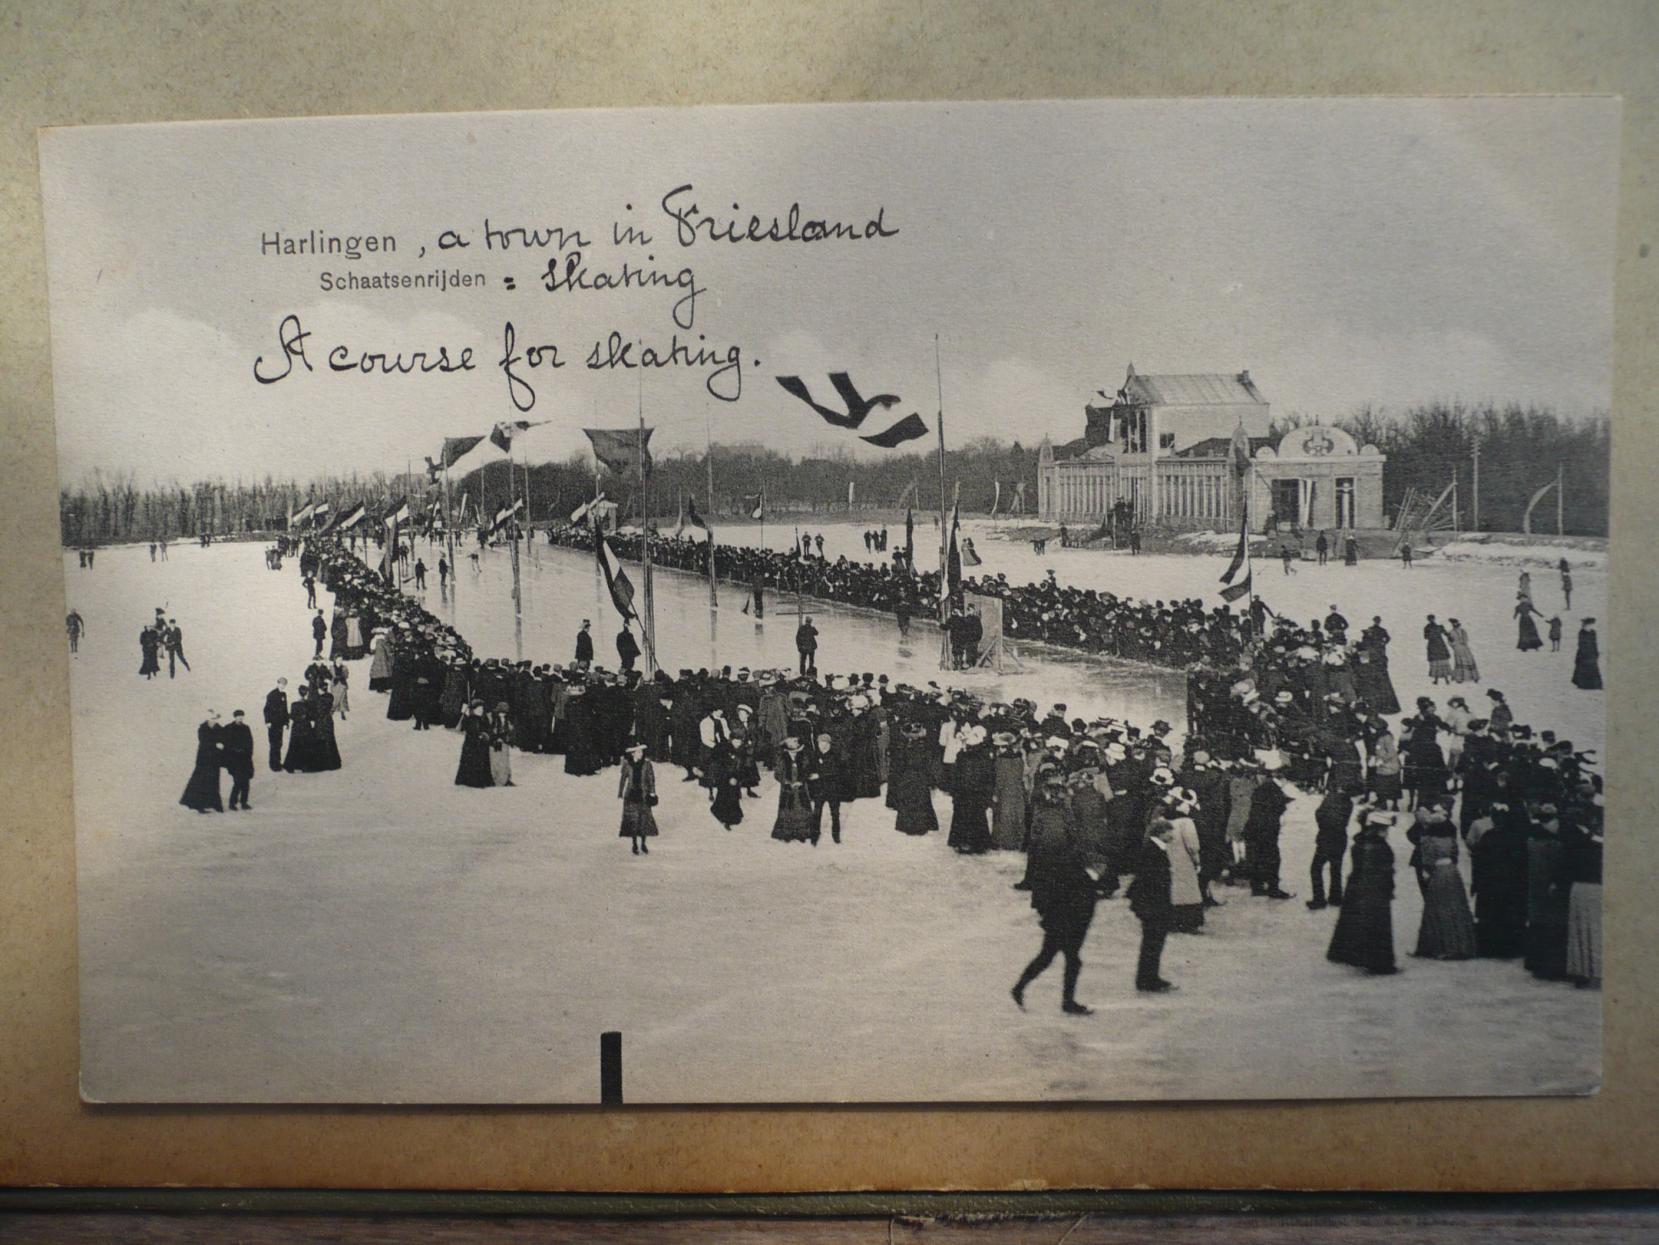 Harlingen , a town in Friesland
Schaatsenrijden = skating
A course for skating.